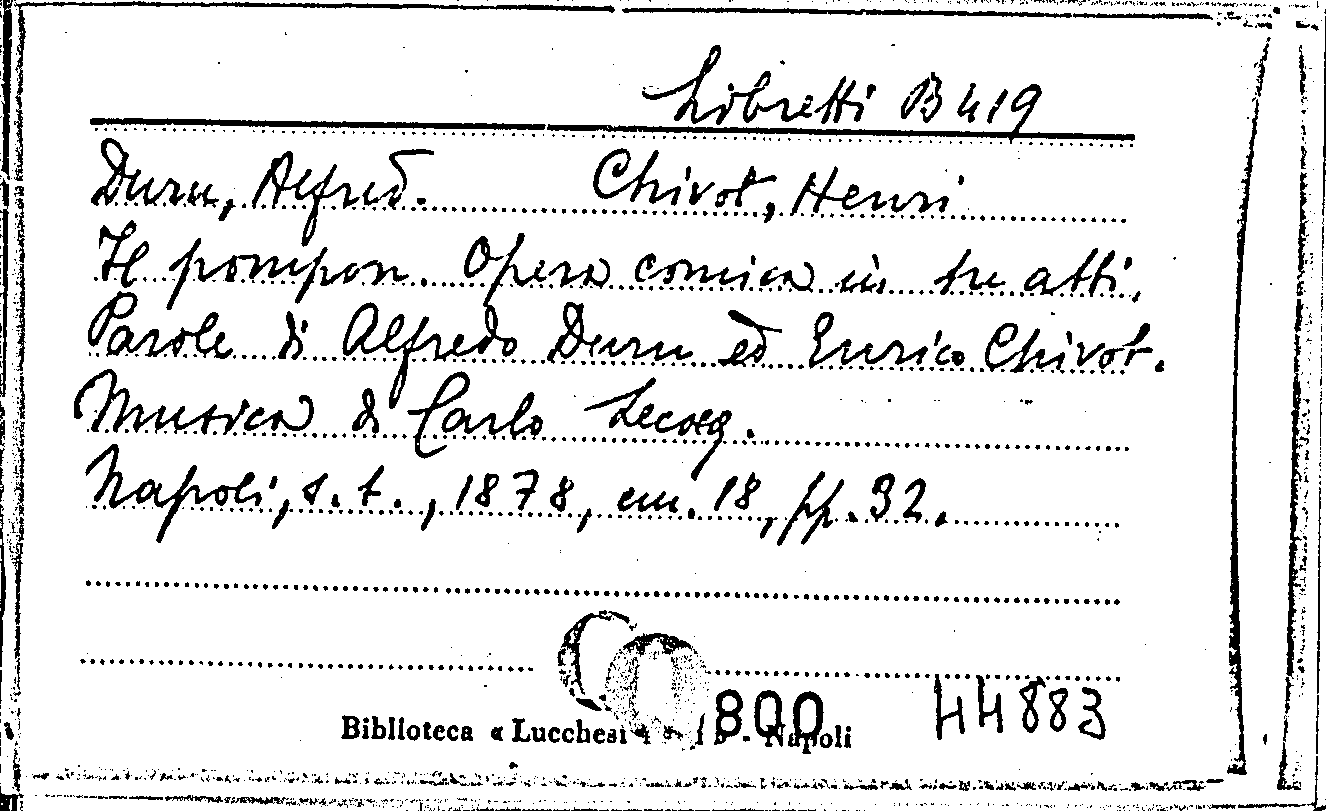 Libretti B 419
Duru, Alfred. Chivot, Henri
Il pompon. Opera comica in tre atti.
Parole di Alfredo Duru ed Enrico Chivot.
Musica di Carlo Lecocq.
Napoli, s. t., 1878, cm. 18, pp. 32.
800 44883
Biblioteca « Lucchesi - Napoli